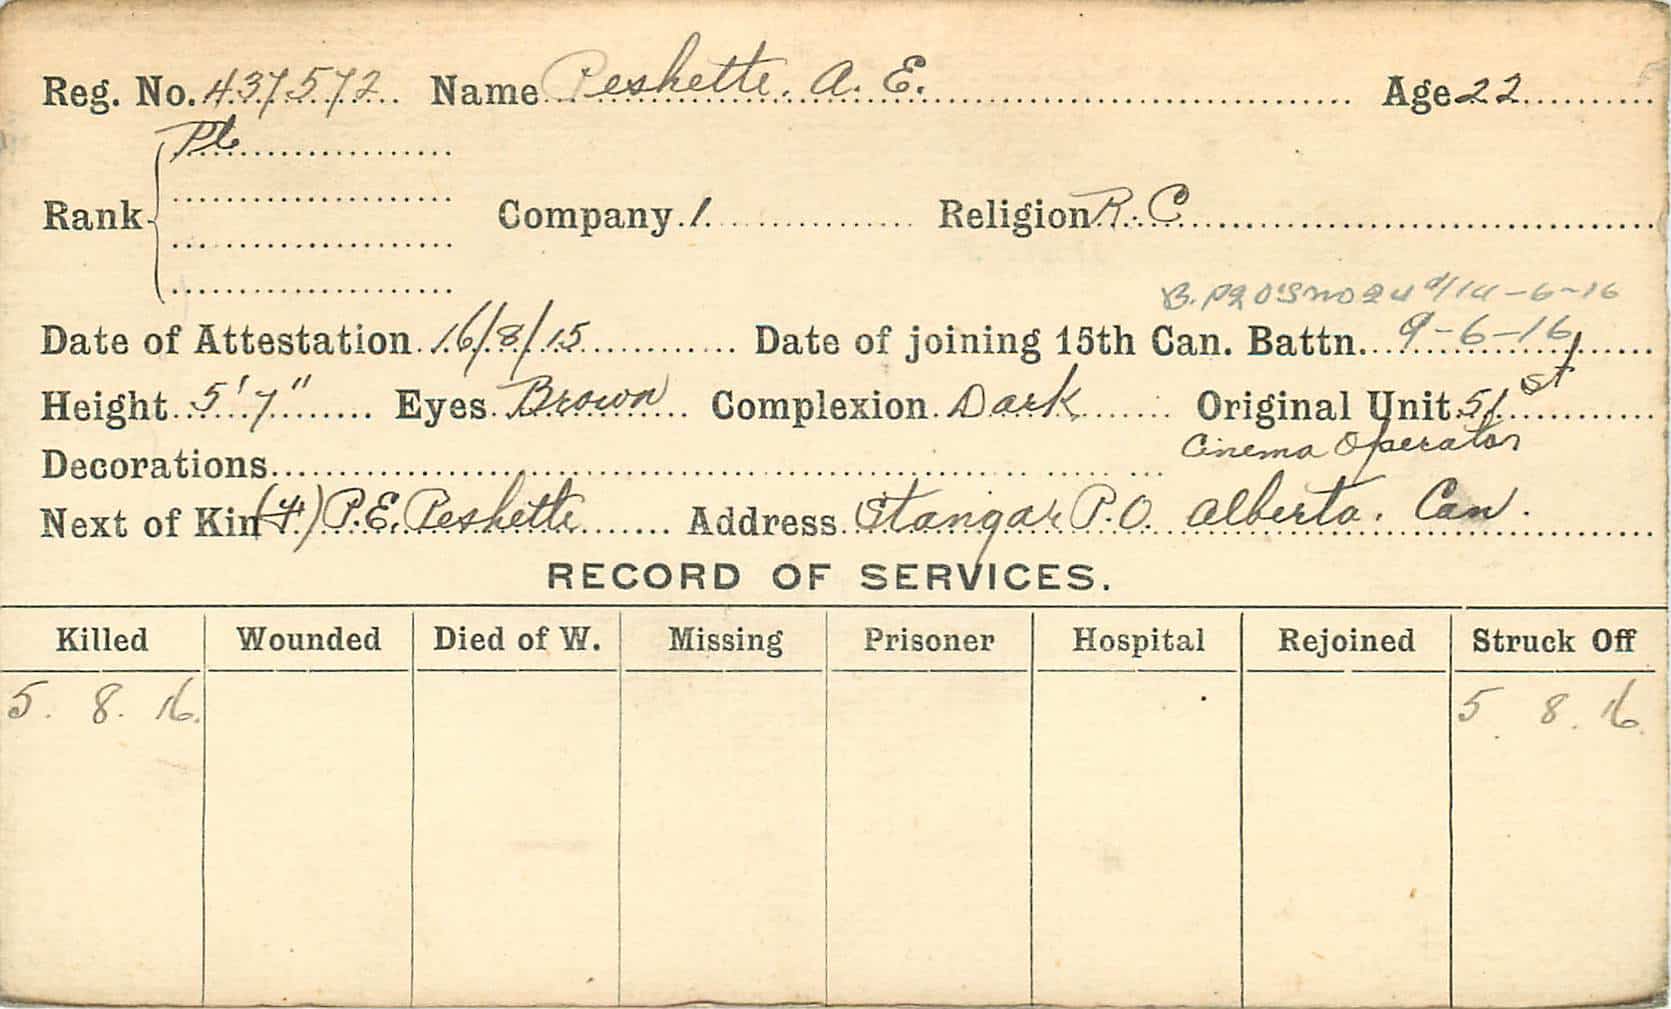 Reg. No. 437572 Name Peshette. A. E. Age 22
Pte
Rank Company 1 Religion R. C
14-6-16
Date of Attestation 16/8/15 Date of joining 15th Can. Battn. 9-6-16
Height 5'7" Eyes Brown Complexion Dark Original Unit 51st
Decorations Cinema Operator
Next of Kin (F) P.E. Peshette Address Stangar P.O. Alberta. Can.
RECORD OF SERVICES.
Killed Wounded Died of W. Missing Prisoner Hospital Rejoined Struck Off
5. 8. 16. 5 8. 16